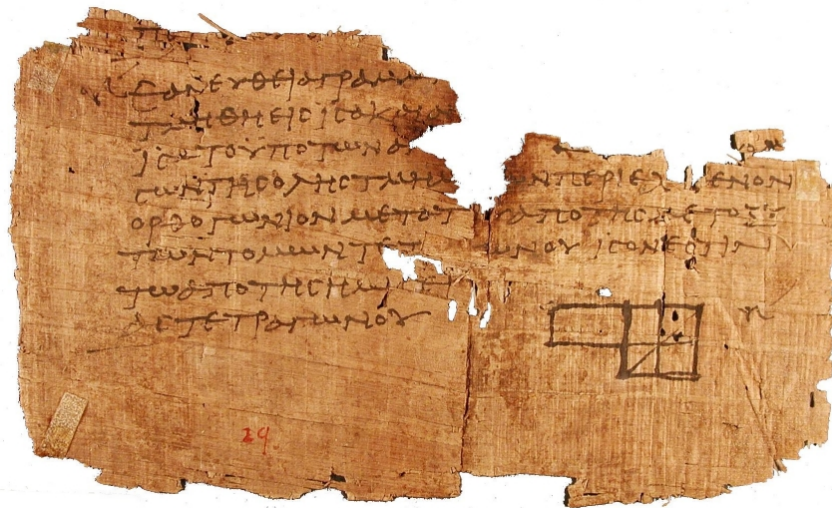 ΕΑΝ ΕΥΘΕΙΑ ΓΡΑΜΜ
ΤΜΗΘΗ ΕΙϹ ΙϹΑ Κ
ΙϹΑ ΤΟ ΥΠΟ ΤΩΝ
ϹΩΝ ΤΗϹ ΟΛΗϹ ΤΜΗΜ ΩΝ ΠΕΡΙΕΧ ΜΕΝΟΝ
ΟΡΘΟΓΩΝΙΟΝ ΜΕΤΑ ΤΟ ΑΠΟ ΤΗϹ ΜΕΤΟΞΥ
ΤΩΝ ΤΟΜΩΝ ΤΕΤ ΩΝΟΥ ΙϹΟΝ ΕϹΤΙΝ
ΤΩ ΑΠΟ ΤΗϹ ΗΜΙϹΕΙ
ΑϹ ΤΕΤΡΑΓΩΝΟΥ
29